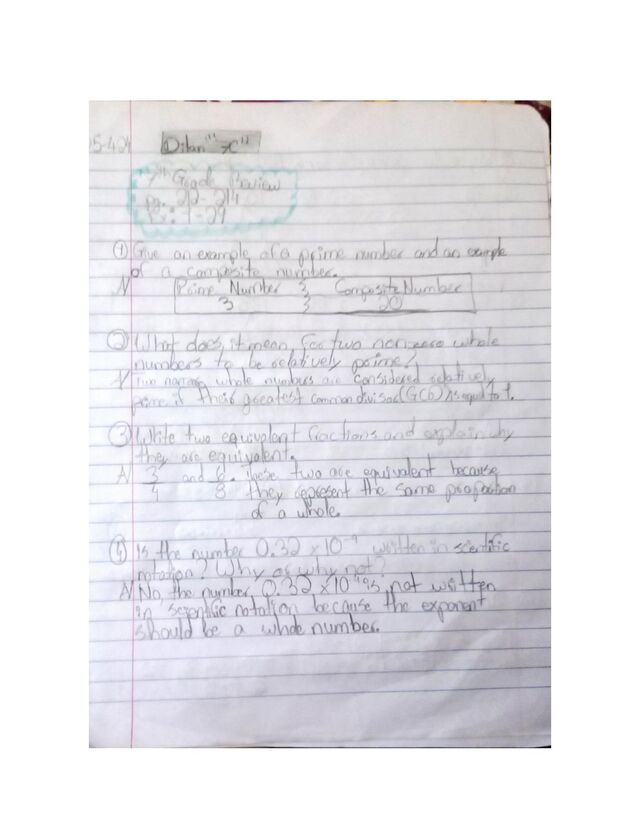 5-424 Dilan "7C"
7th Grade Review
pg. 212-214
Ex: 1-29
① Give an example of a prime number and an example
of a composite number.
Prime Number Composite Number
3 20
② What does it mean for two nonzero whole
numbers to be relatively prime?
Two nonzero whole numbers are considered relatively
prime if their greatest common divisor (GCD) is equal to 1.
③ Write two equivalent fractions and explain why
they are equivalent.
3/4 and 6/8. These two are equivalent because
they represent the same proportion
of a whole.
④ Is the number 0.32 x 10⁻⁹ written in scientific
notation? Why or why not?
No the number, 0.32 x 10 is not written
in scientific notation because the exponent
should be a whole number.